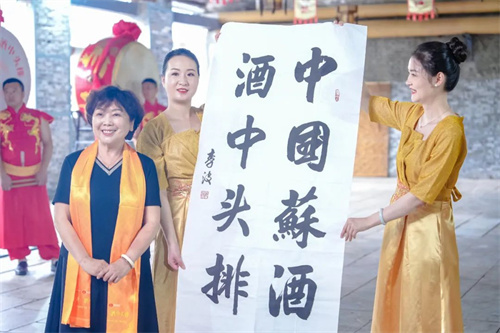 中國蘇酒
酒中头排
李波